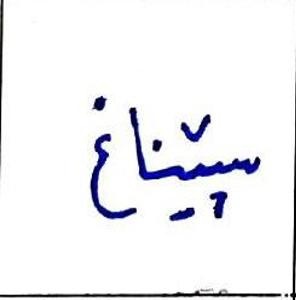 سپێناغ